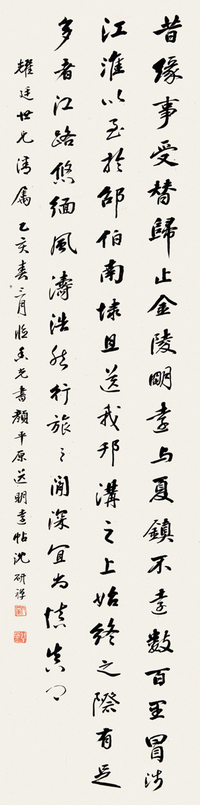 昔緣事受替歸止金陵明遠与夏鎮不遠數百里冒涉
江淮以至於邵伯南埭且送我邗溝之上始終之際有足
多者江路悠緬風濤浩然行旅之間深宜尚慎真卿
耀廷世兄清屬 乙亥春三月臨香光書顏平原送明遠帖沈研